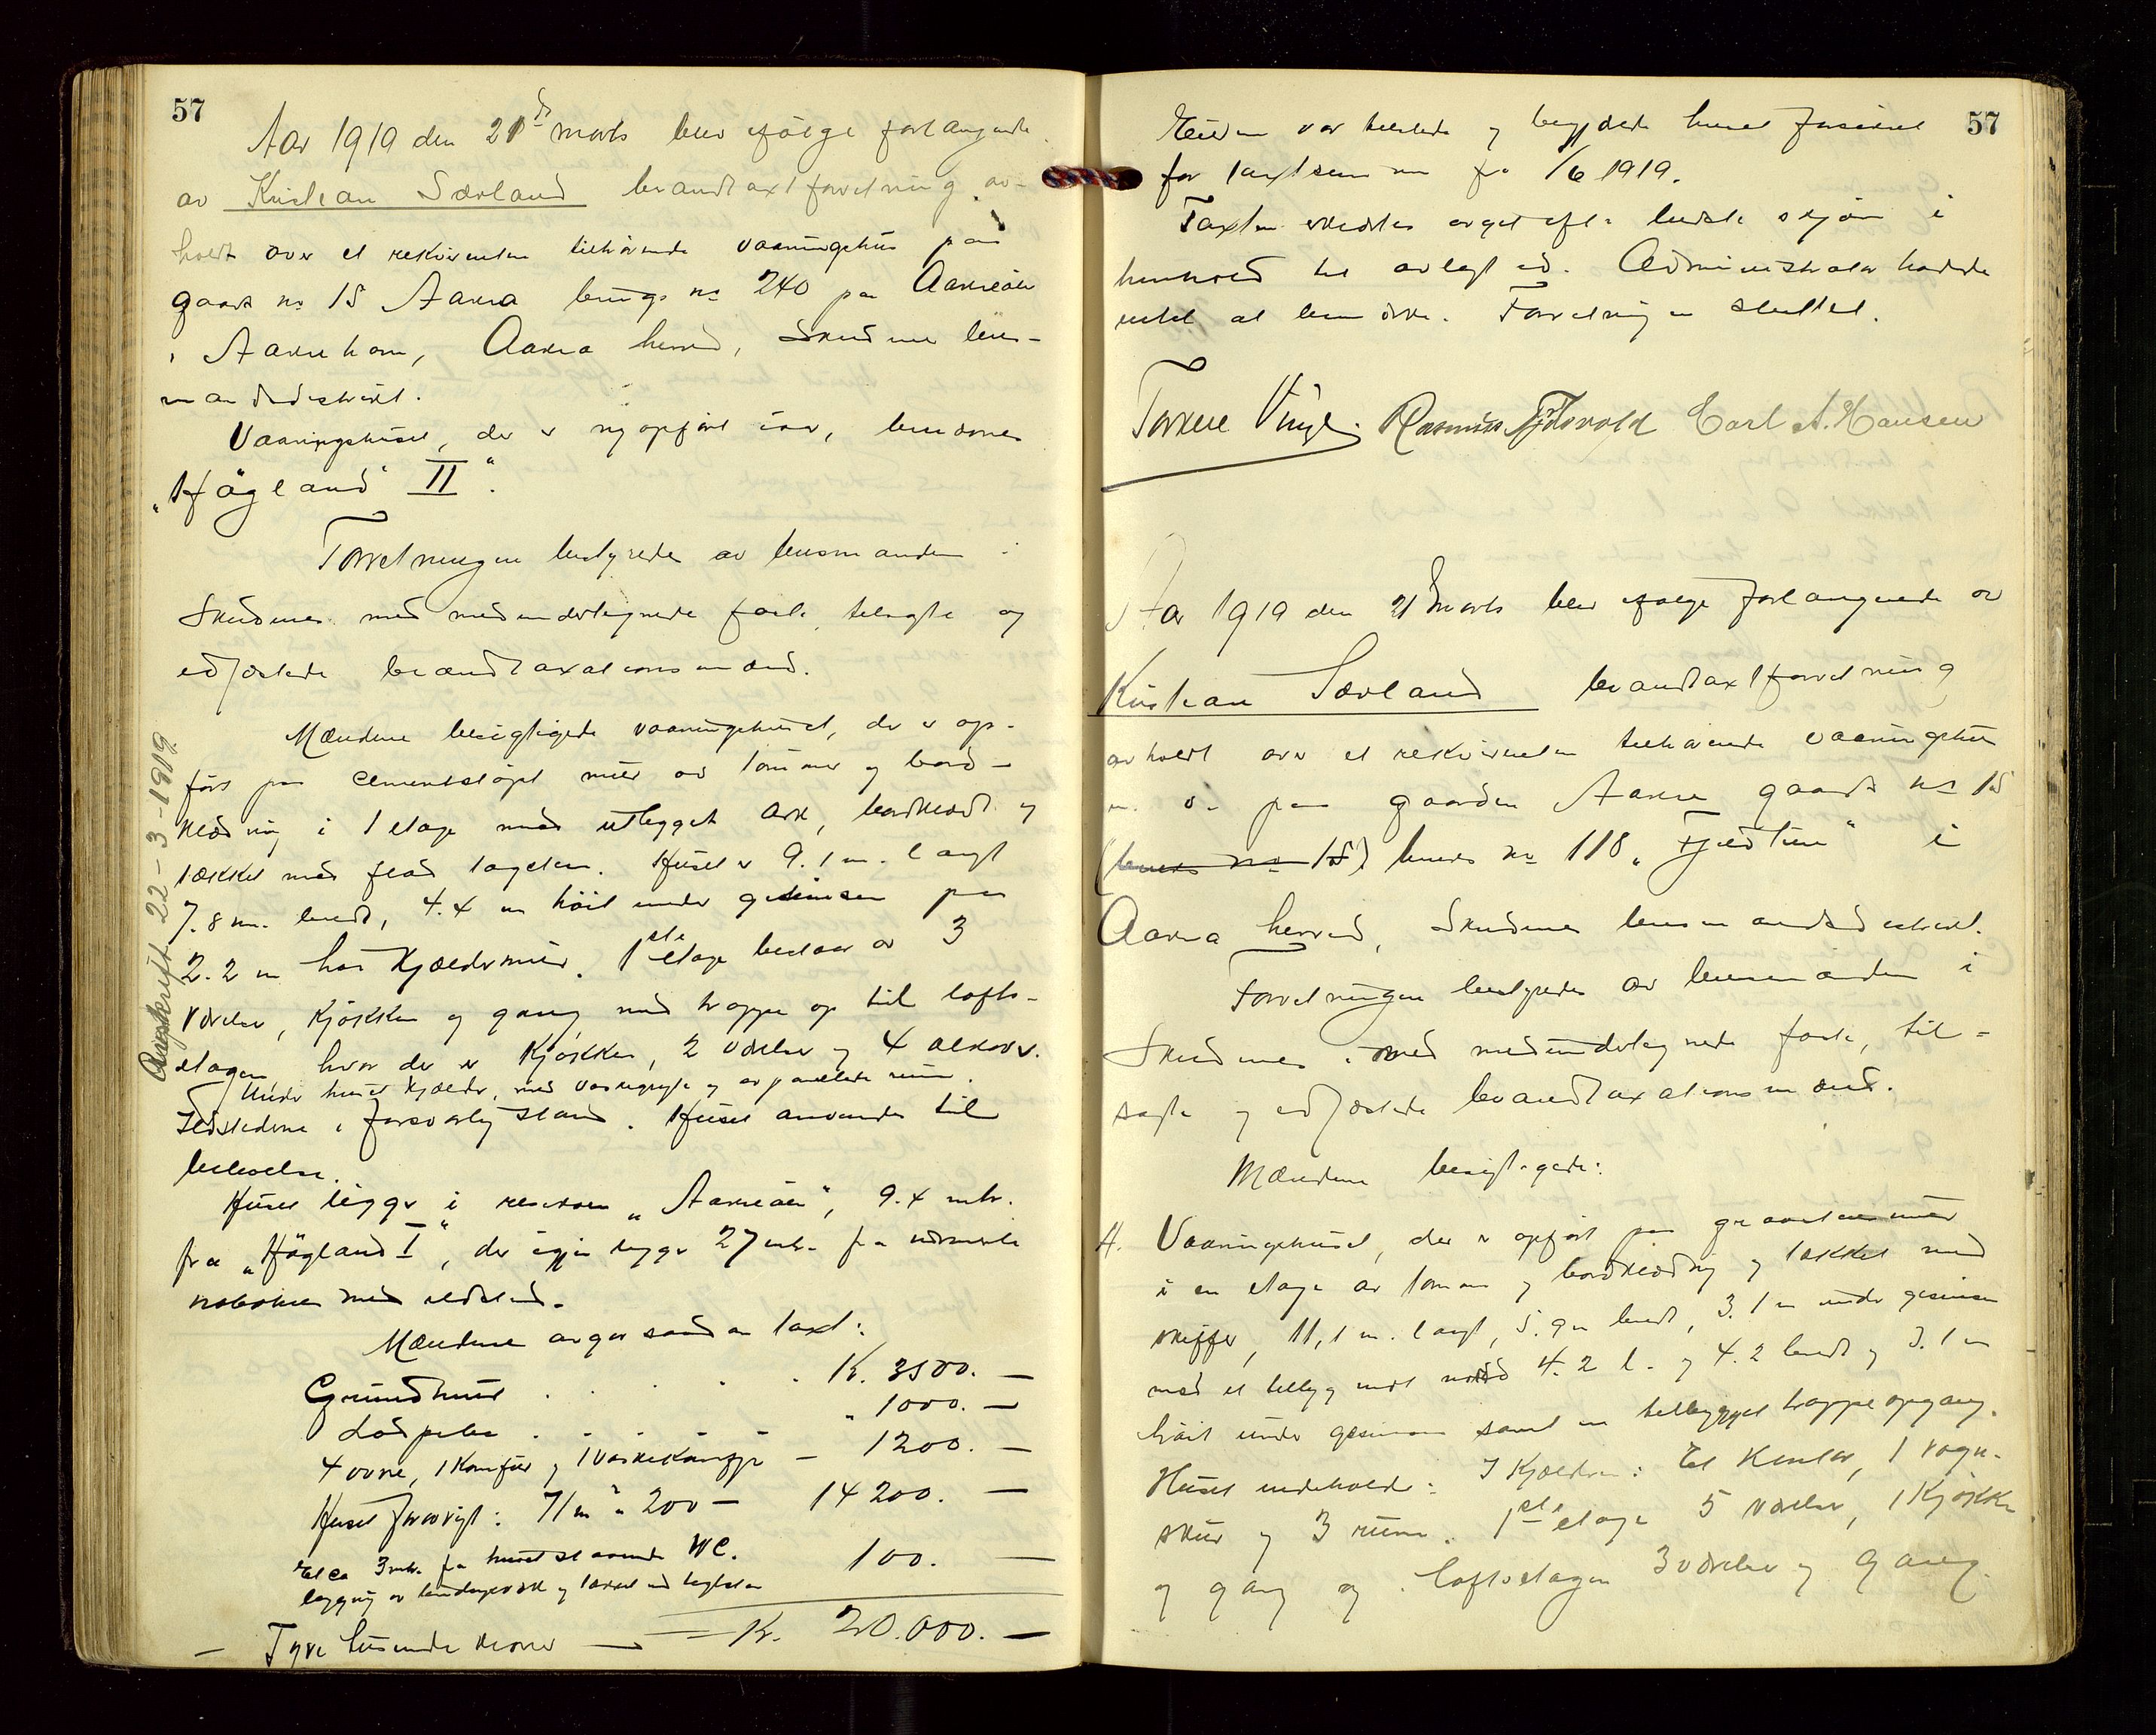 57
Aar 1919 den 21de marts blev ifölge forlangende
av Kristian Særland brandtaxtforretning av-
holdt over et rekvirenten tilhörende vaaningshus paa
gaards no 15 Aakra brugs no 240 paa Aakreöen
i Aakrehavn, Aakra herred, Skudenes lens-
mandsdistrikt.
Vaaningshuset, der er nyopført iaar, benævnes
"Högland" II".
Forretningen bestyredes av lensmanden i
Skudenes med medundertegnede faste, tilsagte og
edfæstede brandtaxationsmænd.
Mændene besigtigede vaaningshuset, der er op-
ført paa cementstöpt mur av tömmer og bord-
klædning i 1 etage med utbygget ark, bordklædt og
tækket med flad tagsten. Huset er 9.1 m. langt
7.8 m. bredt, 4.4 m höit under gesimsen paa
2.2 m høi kjældermur. 1ste etage bestaar av 3
værelser, kjökken og gang med trappe op til lofts-
etagen, hvor der er kjökken, 2 værelser og 4 alkover.
Under huset kjælder, med vaskegryte og avpanelede rum.
Ildstederne i forsvarlig stand. Huset anvendes til
beboelse.
Huset ligger i reserven "Aakreöen", 9.4 mtr.
fra "Högland I", der igjen ligger 27 mtr. fra nærmeste
nabohus med ildsted.
Mændene avgav saadan taxt:
Grundmur . . . . K. 3500. —
Lodpiber . . . " 1000. —
4 ovne, 1 komfur og 1 vaskekamfyr — 1200. —
Huset forövrigt: 71 m² à 200 — 14200. —
Et ca 3 mtr. fra huset staaende WC. 100. —
bygget av bindingsverk og tækket med tagsten
— Tyve tusende kroner — = K. 20.000. —
Avskrift 22-3-1919
57
Eieren var tilstede og begjærte huset forsikret
for taxtsummen fra 1/6 1919.
Taxten erklærtes avgit efter bedste skjön i
henhold til avlagt ed. Administrator hadde
intet at bemærke. Forretningen sluttet.
Torkel Vinje. Rasmus Carl A. Hansen
Aar 1919 den 21 marts blev ifølge forlangende av
Kristian Særland brandtaxtforretning
avholdt over et rekvirenten tilhörende vaaningshus
m. v. paa gaarden Aakre gaards no 15
(bruks no 15) bruks no 118 "Fjeldtun" i
Aakra herred, Skudenes lensmandsdistrikt.
Forretningen bestyredes av lensmanden i
Skudenes med medundertegnede faste, til-
sagte og edfæstede brandtaxationsmænd.
Mændene besigtigede:
A. Vaaningshuset, der er opført paa graastensmur
i en etage av tömmer og bordklædning og tækket med
skiffer, 11,1 m. langt, 5.9 m bredt, 3.1 m under gesimsen
med et tilbygg mot nord 4.2 l. og 4.2 bredt og 3.1 m
höit under gesimsen samt en tilbygget trappeopgang.
Huset indeholder: I Kjælderen: Et kontor, 1 vogn-
skur og 3 rum. 1ste etage 5 værelser, 1 Kjökken
og gang og i loftsetagen 3 værelser og gang.